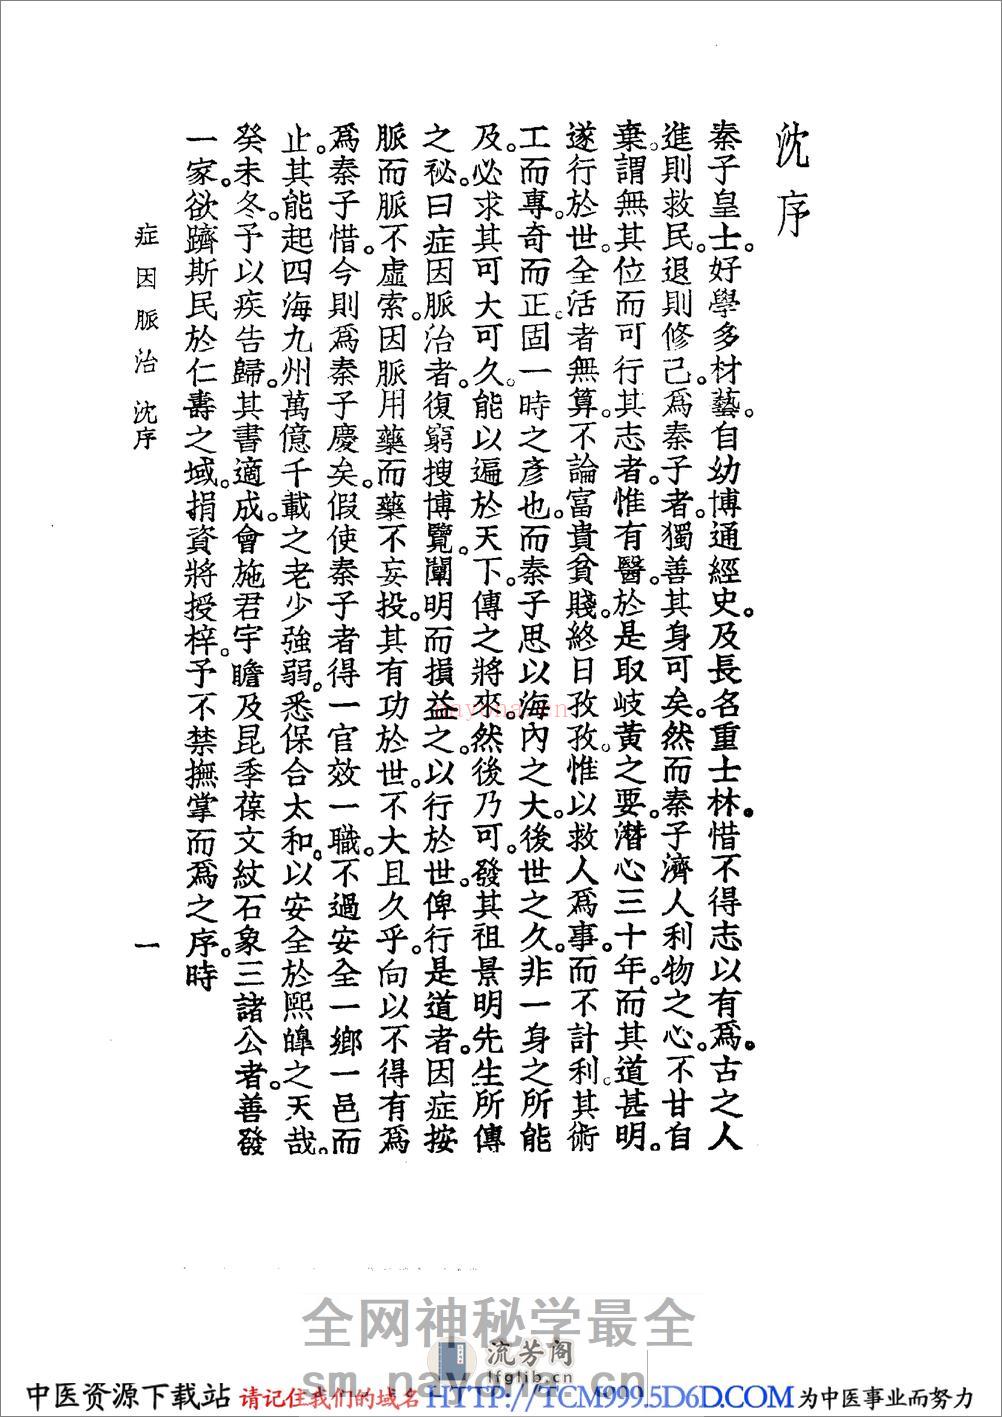 沈序
秦子皇士。好學多材藝。自幼博通經史。及長名重士林。惜不得志以有爲。古之人
進則救民。退則修己。爲秦子者。獨善其身可矣。然而秦子濟人利物之心。不甘自
棄。謂無其位而可行其志者。惟有醫。於是取岐黃之要。潛心三十年。而其道甚明。
遂行於世。全活者無算。不論富貴貧賤。終日孜孜。惟以救人爲事。而不計利。其術
工而專。奇而正。固一時之彥也。而秦子思以海內之大。後世之久。非一身之所能
及。必求其可大可久。能以遍於天下。傳之將來。然後乃可。發其祖景明先生所傳
之秘。曰症因脈治者。復窮搜博覽。闡明而損益之。以行於世。俾行是道者。因症按
脈而脈不虛索。因脈用藥而藥不妄投。其有功於世。不大且久乎。向以不得有爲
爲秦子惜。今則爲秦子慶矣。假使秦子者得一官效一職。不過安全一鄉一邑而
止。其能起四海九州。萬億千載之老少強弱。悉保合太和。以安全於熙皥之天哉。
癸未冬。予以疾告歸。其書適成。會施君宇瞻及昆季葆文紋石象三諸公者。善發
一家。欲躋斯民於仁壽之域。捐資將授梓。予不禁撫掌而爲之序。時
症因脈治 沈序
一
nayona.cn
全网神秘学最全
sm.nayona.cn
流芳阁
lfglib.cn
中医资源下载站 请记住我们的域名 HTTP://TCM999.5D6D.COM 为中医事业而努力